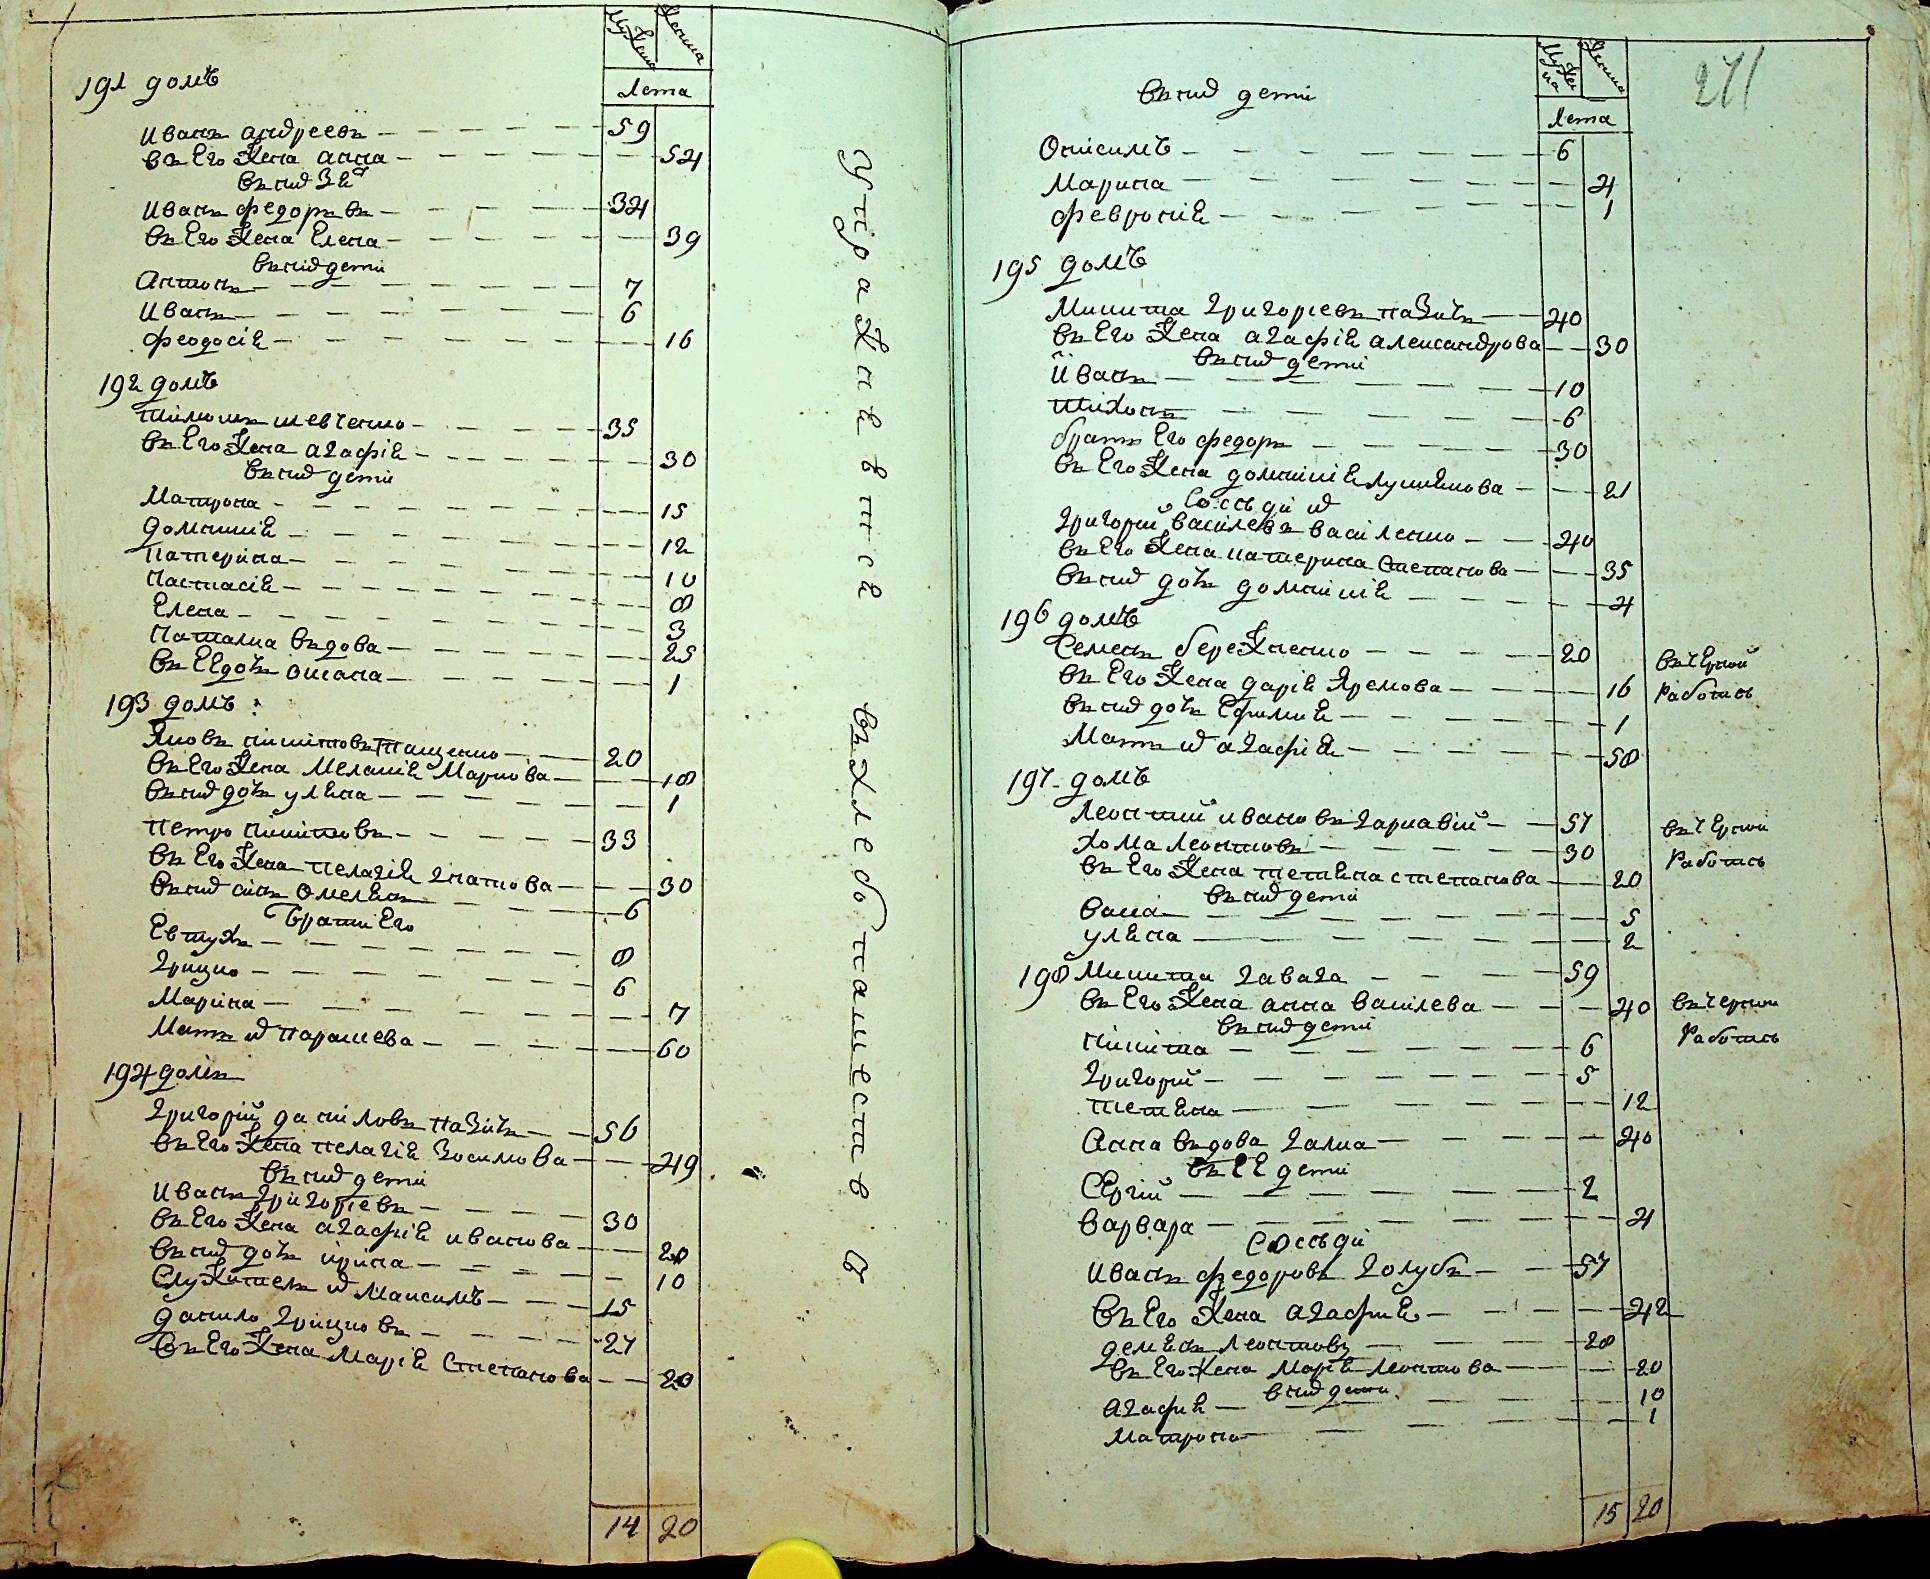 Мужеска
Женска
Лета
191 домъ
Иванъ андреевъ 59
въ Его Жена анна 54
Въ нид Зя
Иванъ федоръвъ 34
въ Его Жена Елена 39
въ нид дети
Антонъ 7
Иванъ 6
феодосія 16
192 домъ
тімошъ шевченко 35
въ Его Жена агафія 30
въ нид дети
Матрона 15
домникія 12
катеріна 10
настасія 8
Елена 3
наталка въдова 25
въ ЕЕ дочь оксана 1
193 домъ
Яковъ нікітовъ пащенко 20
въ Его Жена Меланія Маркова 18
въ нид дочь уляна 1
петро нікітовъ 33
въ Его Жена пелагія Гнаткова 30
въ нид сінъ омелянъ 6
брати Его
Евтухъ 8
Грицко 6
Маріна 7
Мать ид парашева 60
194 домъ
Григорій даніловъ назічъ 56
въ Его Жена пелагія Зосимова 49
въ нид дети
Иванъ Григоріевъ 30
въ Его Жена агафія иванова 20
въ нид дочь іріна 10
Служитель ид Максимъ 15
данило Грицковъ 27
въ Его Жена Марія Степанова 20
14 20
упражнявтся
въ хлебопашествя
в
271
Мужеска
Женска
Лета
въ нид дети
Онісимъ 6
Марина 4
февронія 1
195 домъ
Микита Григоріевъ назічъ 40
въ Его Жена агафія александрова 30
въ нид дети
Иванъ 10
тіхонъ 6
братъ Его федоръ 30
въ Его Жена домникія лукянова 21
Соседи ид
Григорій василевъ василенко 40
въ Его Жена катерина Степанова 35
въ нид дочь домникія 4
196 домъ
Семенъ бережненко 20 въ черной
въ Его Жена дарія Яремова 16 работѣ
въ нид дочь Ефимія 1
Мать ид агафія 50
197 домъ
Леонтий ивановъ гаркавій 57 въ черной
хома леонтовъ 30 работѣ
въ Его Жена тетяна степанова 20
въ нид дети
васа 5
уляна 2
198 Микита гавага 59
въ Его Жена анна василева 40 въ черной
въ нид дети работѣ
нікіта 6
Григорій 5
тетяна 12
Анна въдова галка 40
въ ЕЕ дети
Сергій 2
варвара 4
Соседи
Иванъ федоровъ голубъ 57
въ Его Жена агафія 42
демянъ леонтовъ 28
въ Его Жена Марія леонтова 20
в нид дети
агафія 10
Матрона 1
15 20